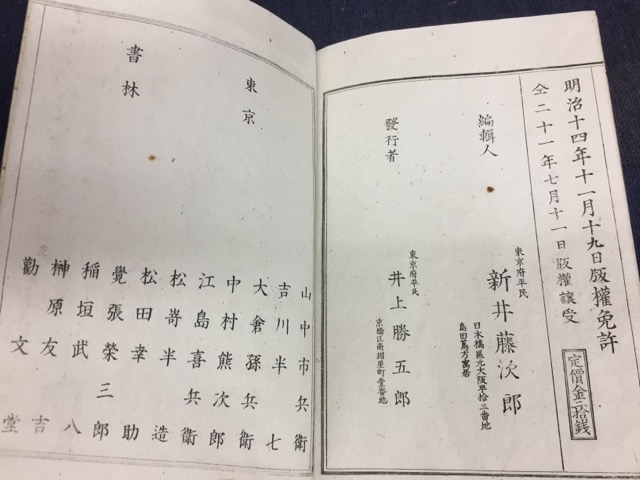 明治十四年十一月十九日版權免許
仝二十一年七月十一日版權讓受
定價金二拾錢
編輯人
東京府平民
新井藤次郎
日本橋區元大阪町拾三番地
島田萬方寓居
發行者
東京府平民
井上勝五郎
京橋区南紺屋町壹番地
東京
書林
山中市兵衛
吉川半七
大倉孫兵衛
中村熊次郎
江島喜兵衛
松嵜半造
松田幸助
覺張榮三郎
稲垣武八
榊原友吉
勸文堂